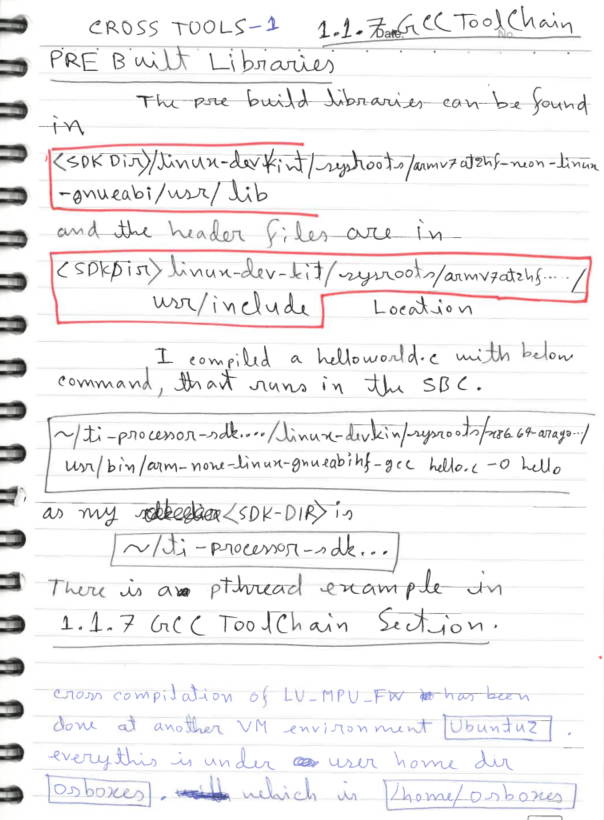 CROSS TOOLS-1 1.1.7 GCC ToolChain
Date: No
PRE Built Libraries
The pre build libraries can be found
in
<SDK Dir>/linux-devkint/sysroots/armv7at2hf-neon-linux
-gnueabi/usr/lib
and the header files are in
<SDKDir> linux-dev-kit/sysroots/armv7at2hf...../
usr/include Location
I compiled a helloworld.c with below
command, that runs in the SBC.
~/ti-processor-sdk..../linux-devkin/sysroots/x86_64-arago.../
usr/bin/arm-none-linux-gnueabihf-gcc hello.c -o hello
as my <SDK-DIR> is
~/ti-processor-sdk...
There is a pthread example in
1.1.7 GCC ToolChain Section.
cross compilation of LV_MPU_FW has been
done at another VM environment Ubuntu2.
everythis is under user home dir
osboxes. which is /home/osboxes